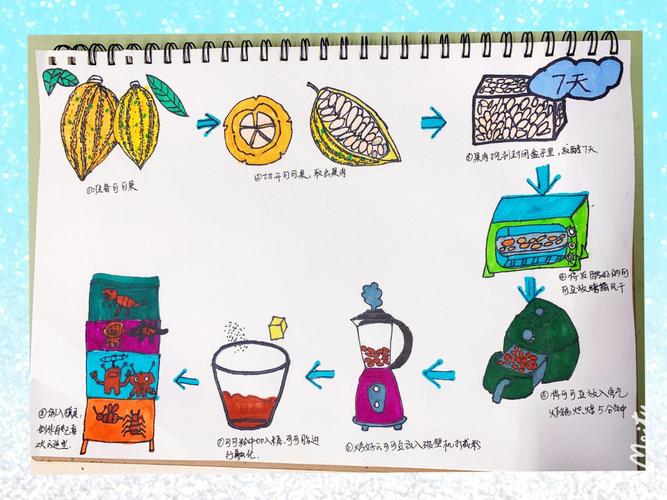 7天
①准备可可果
②切开可可果，取出果肉
③果肉挖到封闭盒子里，发酵7天
④将发酵好的可
可豆放烤箱风干
⑤将可可豆放入空气
炸锅烘烤5分钟
⑥烤好的可可豆放入破壁机打成粉
⑦可可粉中加入糖、可可脂进
行融化.
⑧倒入模具,
制作自己喜
欢的造型.
Meitu